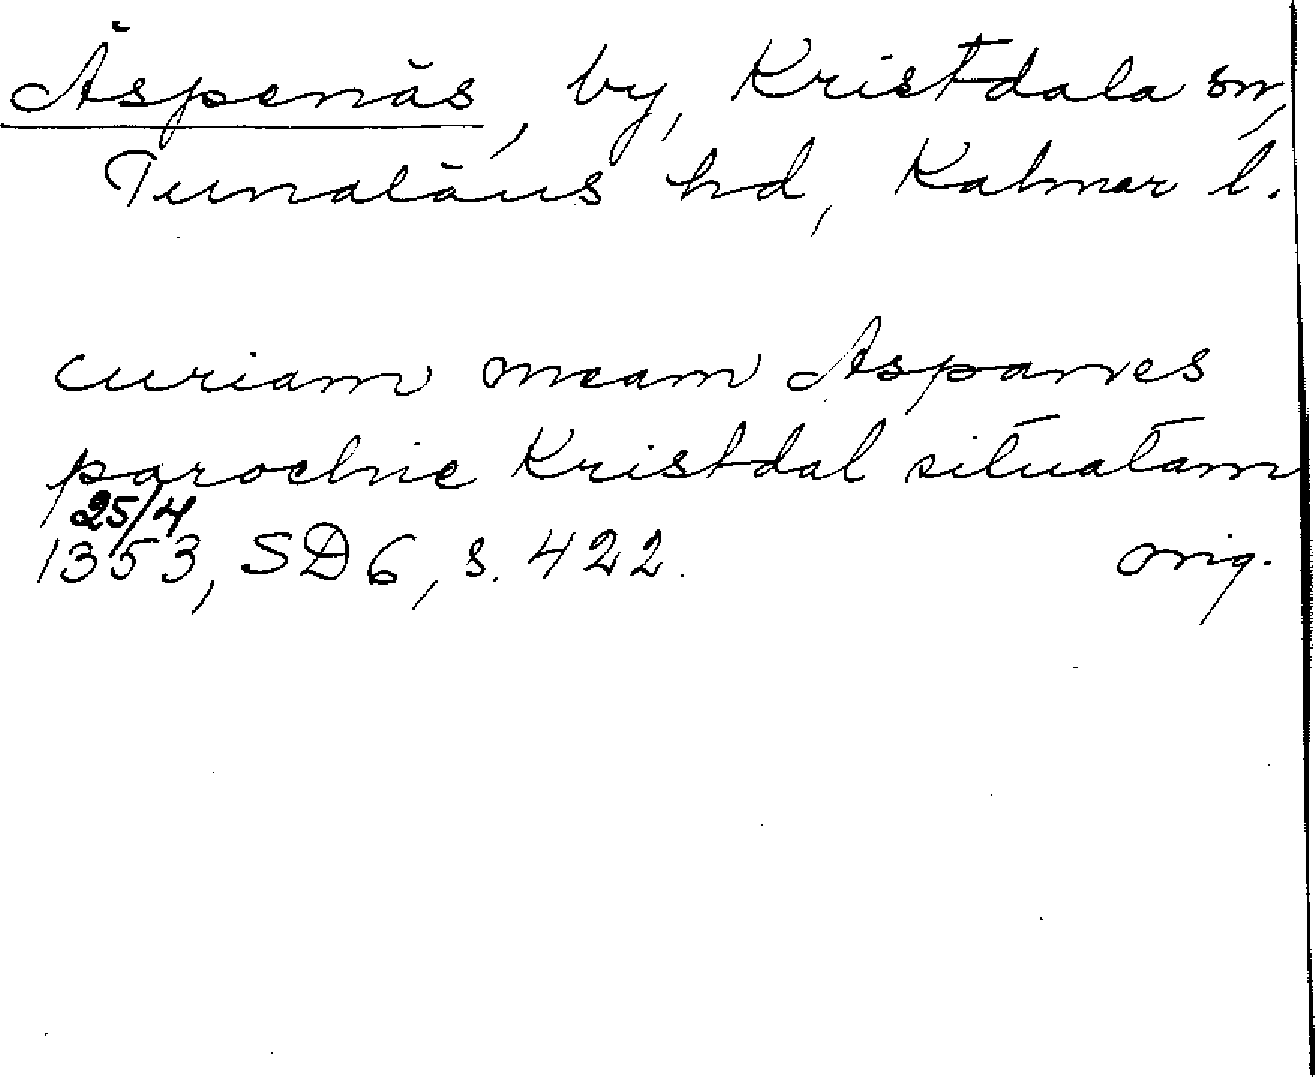 Äspenäs, by, Kristdala sn,
Tunaläns hd, Kalmar l.
curiam meam Aspanes
parochie Kristdal situatam
25/4
1353, SD 6, s. 422. orig.